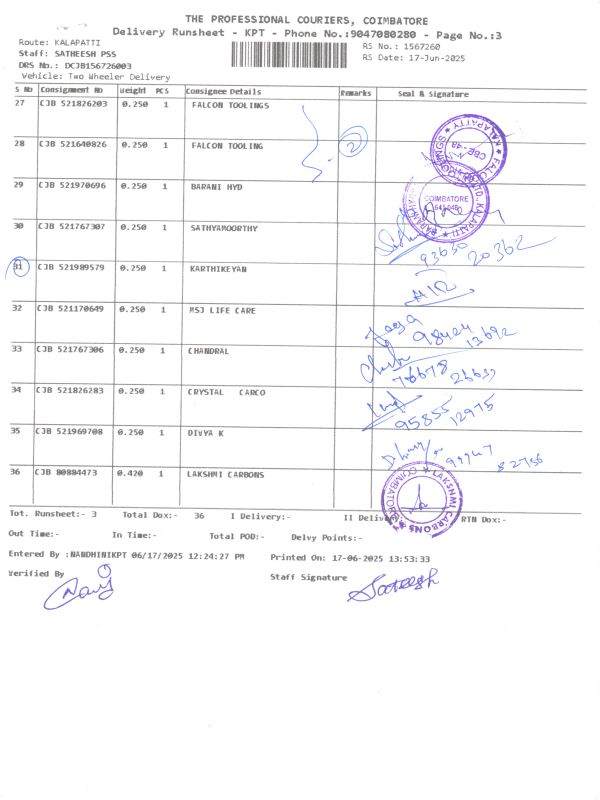 THE PROFESSIONAL COURIERS, COIMBATORE
Delivery Runsheet - KPT - Phone No.:9047080280 - Page No.:3
Route: KALAPATTI
RS No.: 1567260
Staff: SATHEESH PSS
RS Date: 17-Jun-2025
DRS No.: DCJB156726003
Vehicle: Two Wheeler Delivery
S No Consignment No Weight PCS Consignee Details Remarks Seal & Signature
27 CJB 521826203 0.250 1 FALCON TOOLINGS
28 CJB 521640826 0.250 1 FALCON TOOLING 2
KALAPATTY CBE-48
29 CJB 521970696 0.250 1 BARANI HYD
COIMBATORE
30 CJB 521767307 0.250 1 SATHYAMOORTHY
93630 20362
31 CJB 521989579 0.250 1 KARTHIKEYAN
32 CJB 521170649 0.250 1 MSJ LIFE CARE
98424 13692
33 CJB 521767306 0.250 1 CHANDRAL
34 CJB 521826283 0.250 1 CRYSTAL CARCO
95855 12975
35 CJB 521969708 0.250 1 DIVYA K
36 CJB 80884473 0.420 1 LAKSHMI CARBONS
LAKSHMI CARBONS COIMBATORE
Tot. Runsheet:- 3 Total Dox:- 36 I Delivery:- II Delivery:- RTN Dox:-
Out Time:- In Time:- Total POD:- Delvy Points:-
Entered By :NANDHINIKPT 06/17/2025 12:24:27 PM Printed On: 17-06-2025 13:53:33
Verified By Staff Signature
Sateesh